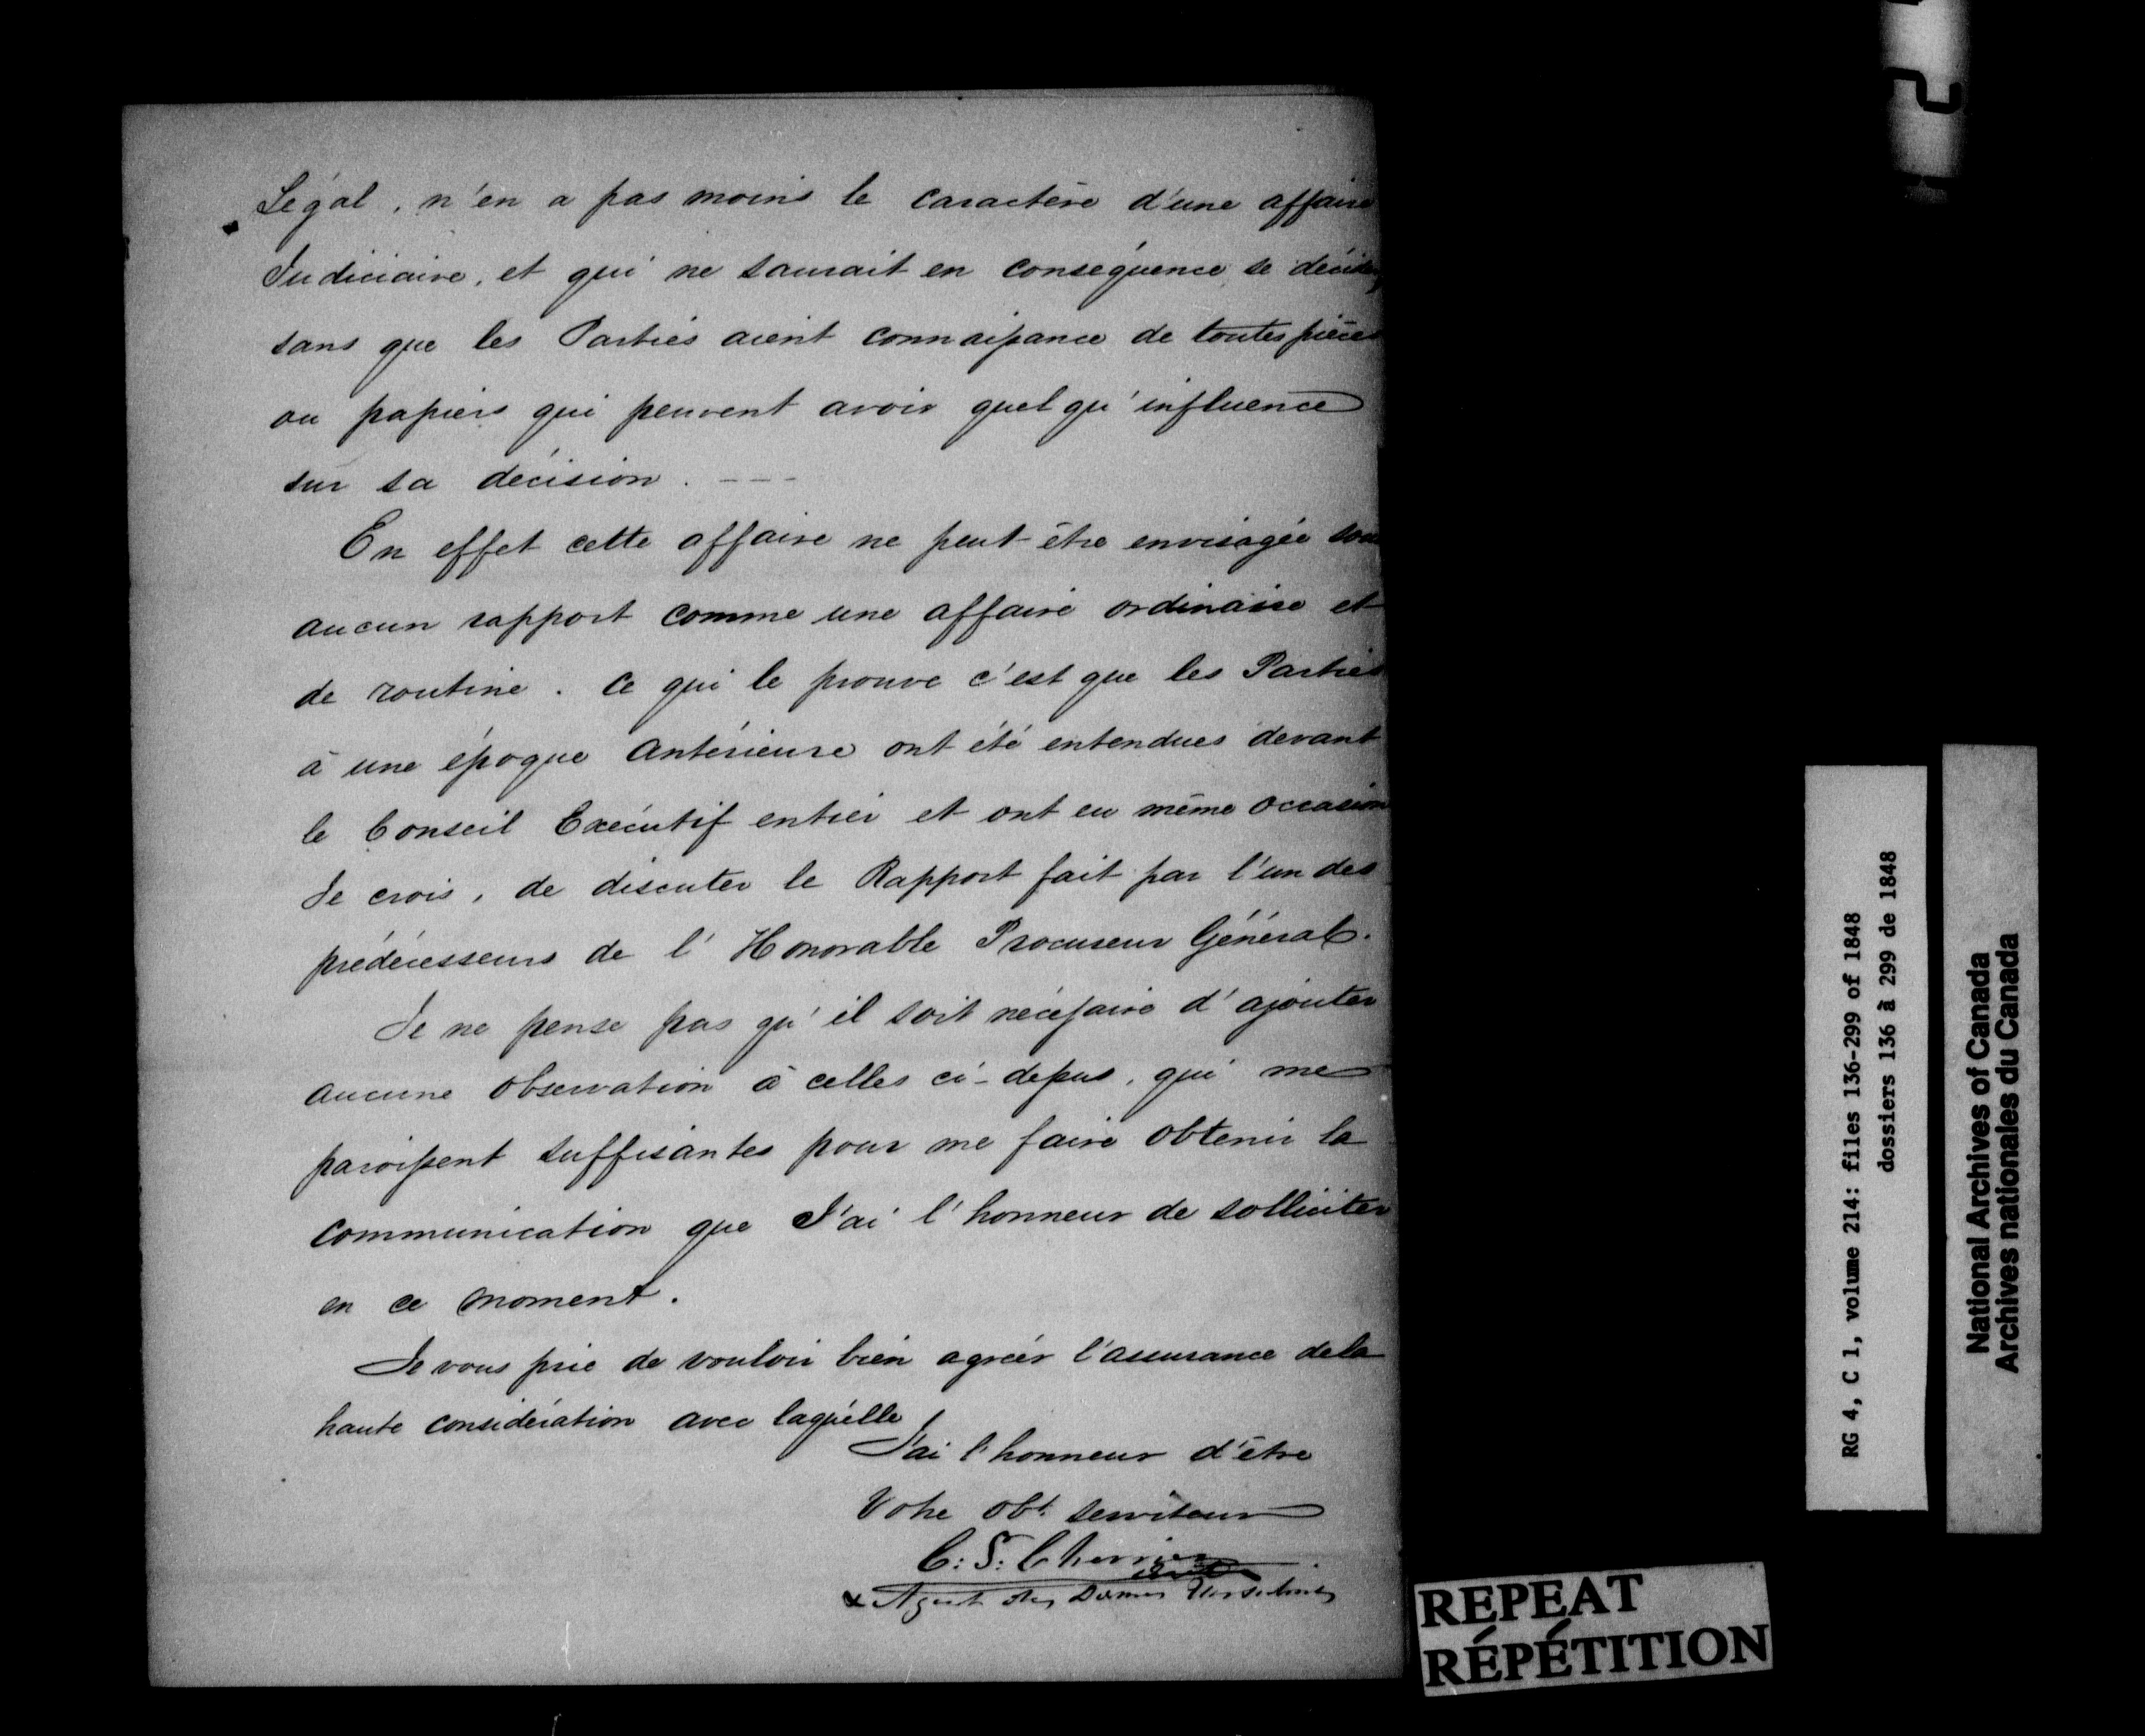 Légal, n'en a pas moins le caractère d'une affaire
Judiciaire, et qui ne saurait en conséquence, se décider
sans que les Parties aient connaissance de toutes pièces
ou papiers qui peuvent avoir quelqu'influence
sur sa décision. ---
En effet cette affaire ne peut-être envisagée sous
aucun rapport comme une affaire ordinaire et
de routine. ce qui le prouve c'est que les Parties
à une époque Antérieure ont été entendues devant
le Conseil Exécutif entier et ont eu même occasion
Je crois, de discuter le Rapport fait par l'un des
prédécesseurs de l'Honorable Procureur Général.
Je ne pense pas qu'il soit nécessaire d'ajouter
aucune observation à celles ci-dessus, qui me
paroissent suffisantes pour me faire obtenir la
communication que J'ai l'honneur de solliciter
en ce moment.
Je vous prie de vouloir bien agréer l'assurance de la
haute considération avec laquelle
J'ai l'honneur d'être
Votre obt. serviteur
C: S: Cherrier
Agent des Dames Urselines
RG 4, C 1, volume 214: files 136-299 of 1848
dossiers 136 à 299 de 1848
National Archives of Canada
Archives nationales du Canada
REPEAT
RÉPÉTITION